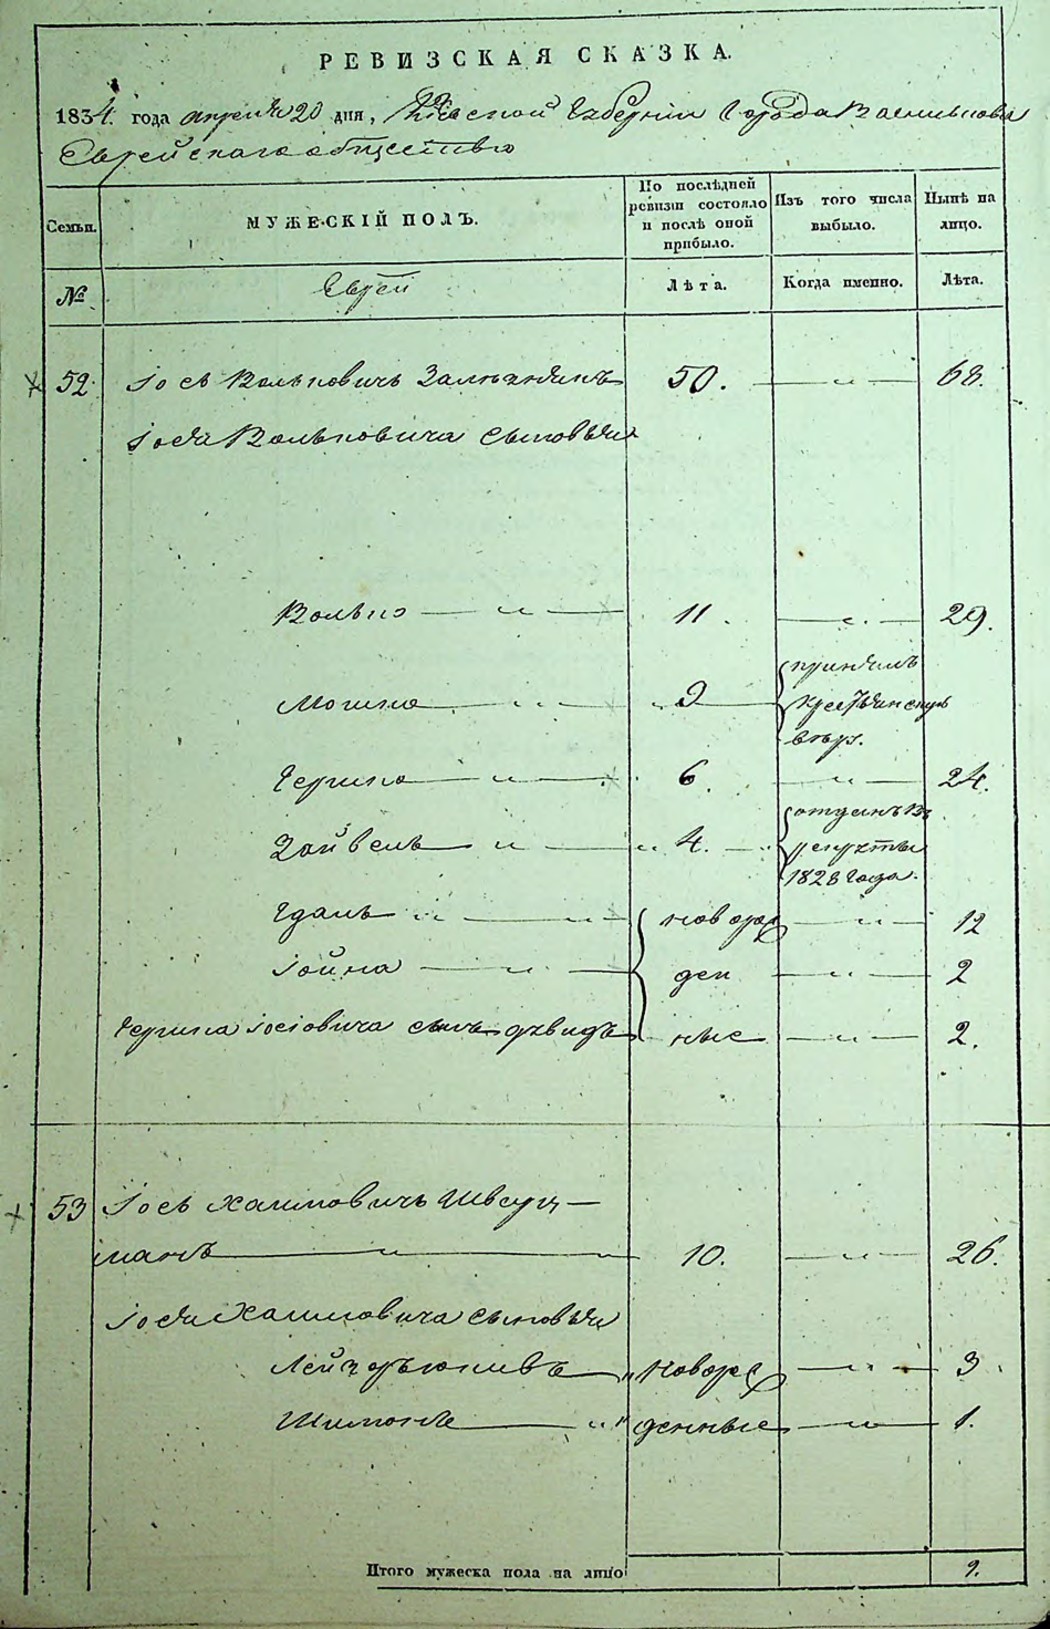 РЕВИЗСКАЯ СКАЗКА.
1834. года апреля 20 дня, Киевской Губернии Города Василькова
Еврейскаго общества
Семьи.
МУЖЕСКІЙ ПОЛЪ.
По послѣдней ревизіи состояло и послѣ оной прибыло.
Изъ того числа выбыло.
Нынѣ на лицо.
№
Еврей
Лѣта.
Когда именно.
Лѣта.
52. Іось Вольковичъ 50. — „ — 68.
Іося Вольковича сыновья
Волько — „ — 11. — „ — 29.
Мошко — „ — 9 принялъ христіянскую вѣру.
Гершко — „ — 6. — „ — 24.
Зайвель — „ — „ 4. — „ отданъ въ рекруты 1828 года.
„ — „ новорож — „ — 12
Іойна — „ — ден — „ — 2
Гершка Іосіовича сынъ Дувидъ ные — „ — 2.
53 Іось Хаимовичъ Шварц—
манъ — „ — 10. — „ — 26.
Іося Хаимовича сыновья
— „ новорож — „ — 3
Шимонъ — „ денные — „ — 1.
Итого мужеска пола на лицо 9.